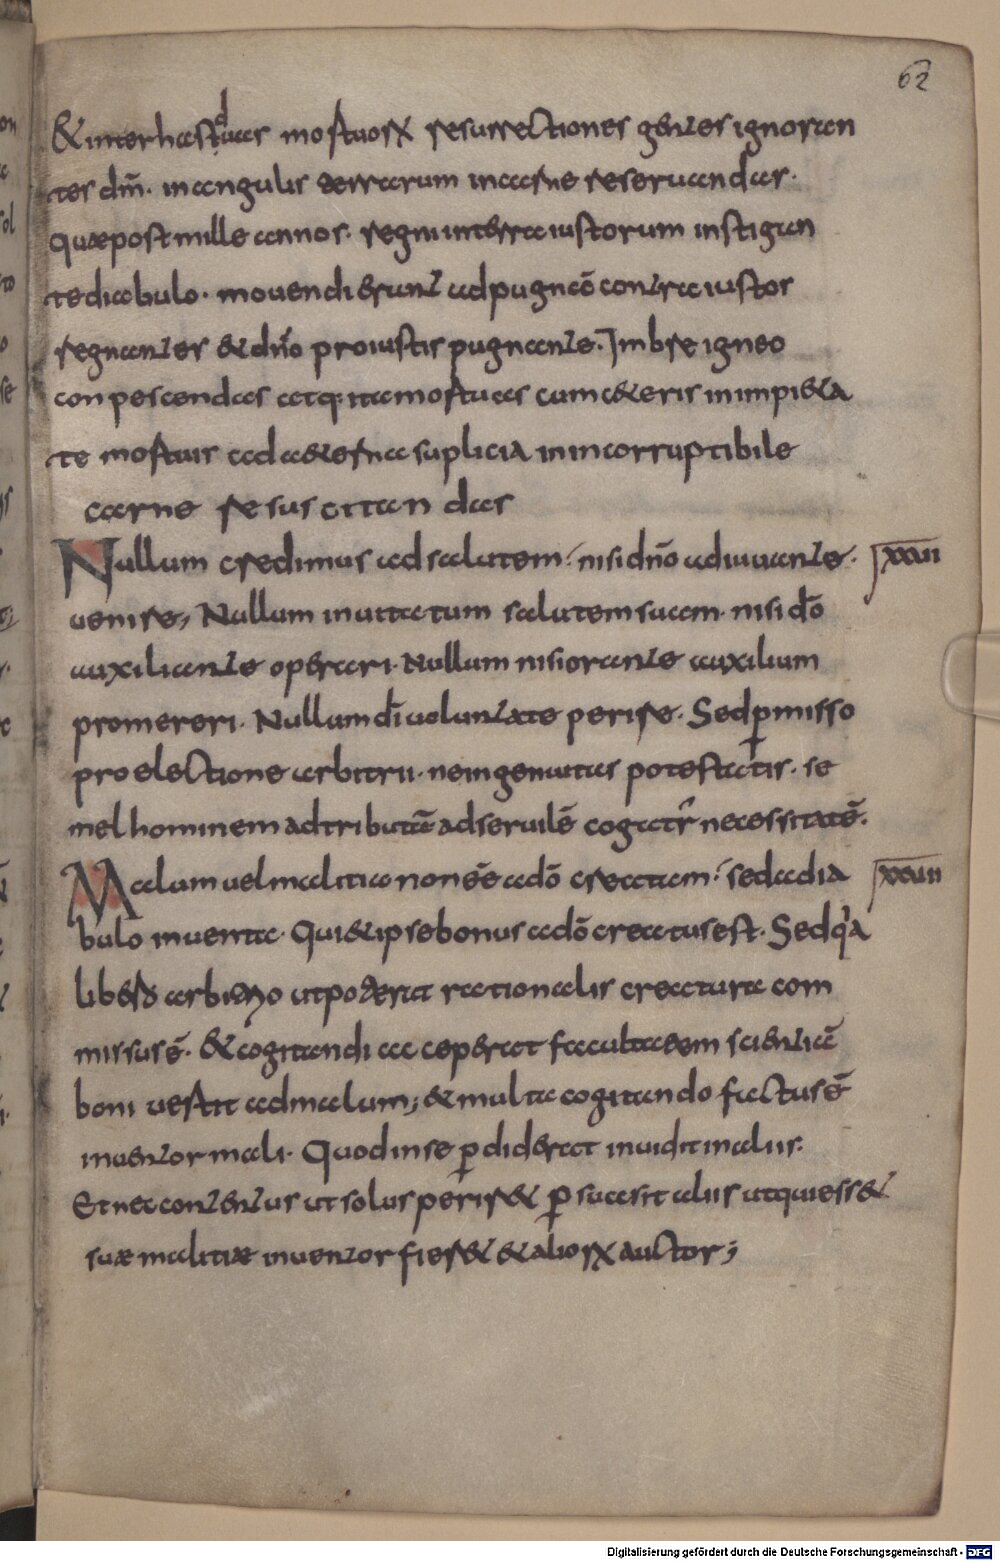 62
& inter hastduas mortuorum resurrectiones gentes ignoran
tes dm̄. in angulis terrarum in carne reseruandas.
quæ post mille annos. regni in terra iustorum instigan
te diabulo. mouendi erunt ad pugnā contra iustos
regnantes & dn̄o pro iustis pugnante. Imbre igneo
conpescendas atq; ita mortuas cum c&eris in impi&a
te mortuis ad a&erna suplicia in incorruptibile
carne resuscitandas
Nullum credimus ad salutem. nisi dn̄o adiuuante. xxii
uenire; Nullum inuitatum salutem suam. nisi dō
auxiliante operari. Nullum nisi orante auxilium
promereri. Nullum dī uoluntate perire. Sed p̱misso
pro electione arbitrii. ne ingenuitas potestatis. se
mel hominem adtributā ad seruilē cogatr̄ necessitatē.
Malum uel malitia non ēē a dō creatam. sed a dia xxiii
bulo inuenta. Qui & ipse bonus a dō creatus est. Sed qa
libero arbitrio utpoterat rationalis creatura com
missus ē. & cogitandi acceperat facultatem scientiā
boni uertit ad malum; & multa cogitando factus ē
inuentor mali. Quod in se p̱diderat inuidit in aliis.
Et nec contentus ut solus perir& p̱suasit aliis utqui ess&
suæ malitiæ inuentor fier& & aliorum auctor;
Digitalisierung gefördert durch die Deutsche Forschungsgemeinschaft - DFG